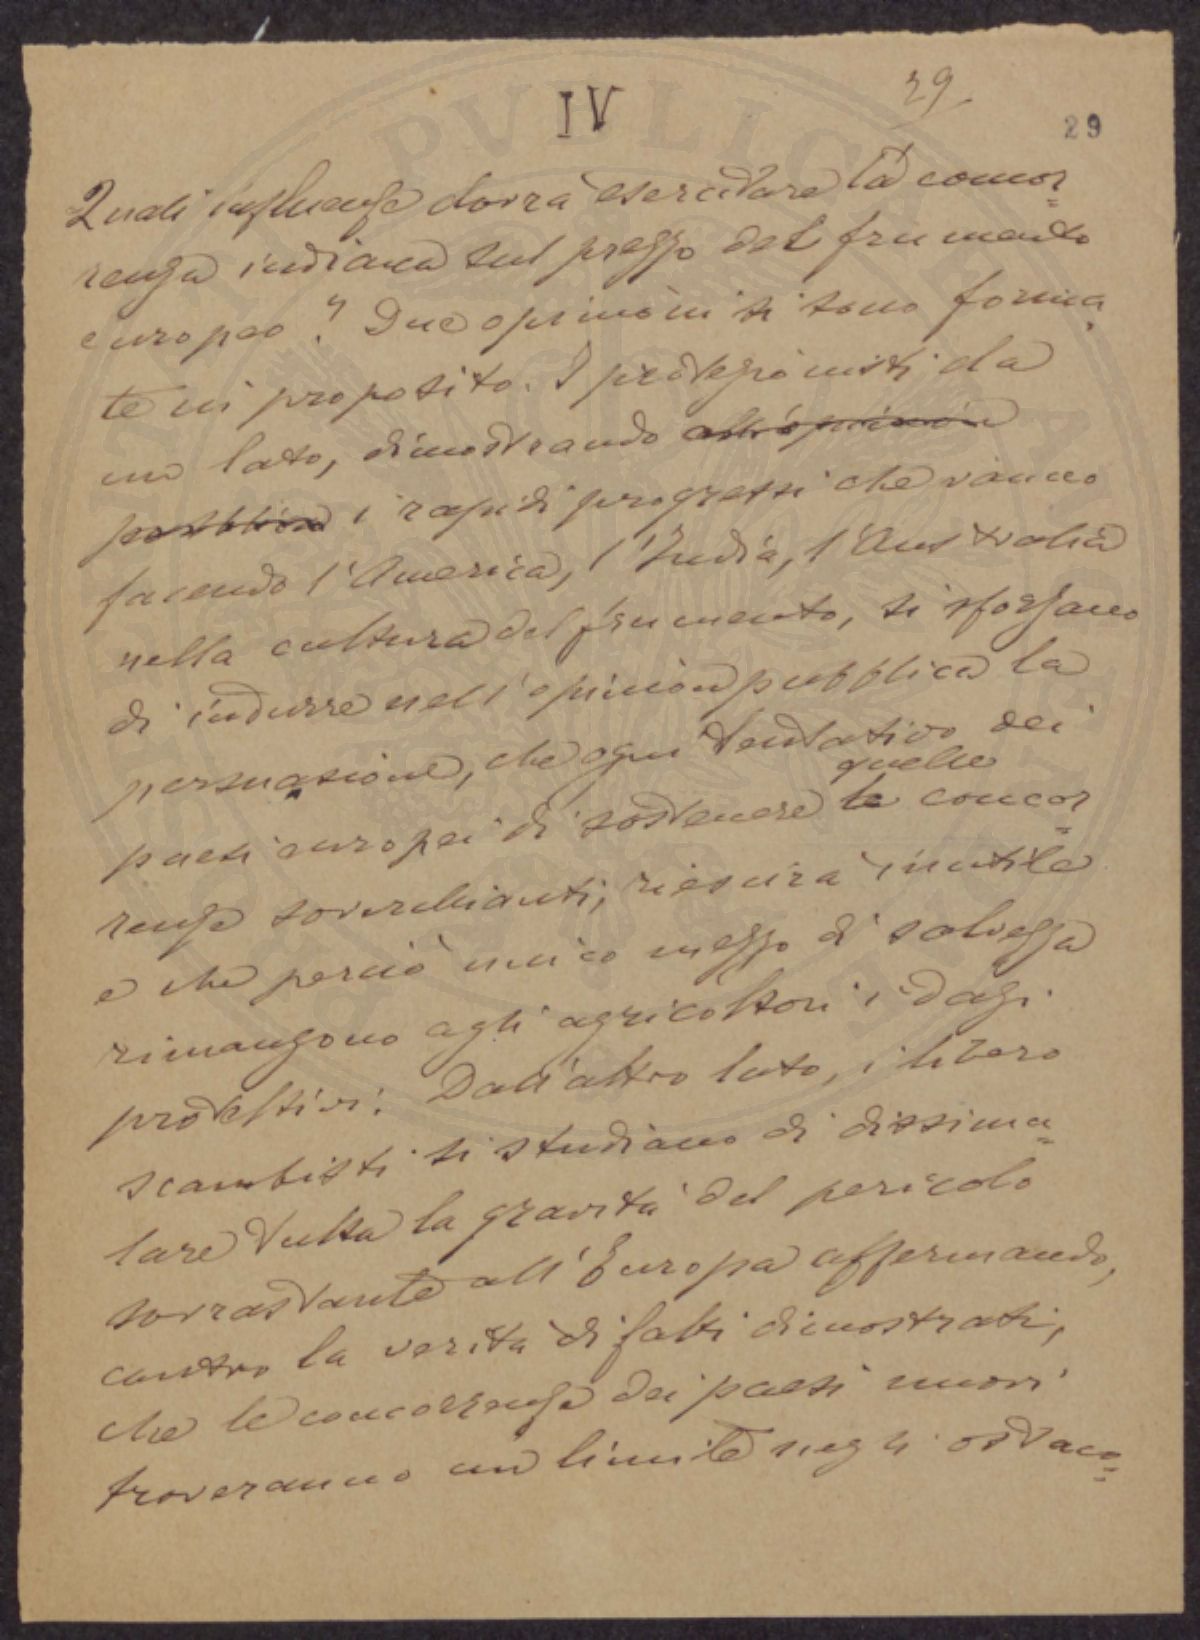 29
IV
29
Quali influenze dovrà esercitare la concor=
renza indiana sul prezzo del frumento
europeo? Due opinioni si sono forma
te in proposito. I protezionisti da
un lato, dimostrando all'opinion
pubblica i rapidi progressi che vanno
facendo l'America, l'India, l'Australia
nella cultura del frumento, si sforzano
di indurre nell'opinion pubblica la
persuasione, che ogni tentativo dei
quelle
paesi europei di sostenere le concor=
renze soverchianti, riescirà inutile
e che perciò unico mezzo di salvezza
rimangono agli agricoltori i dazi
protettivi. Dall'altro lato, i libero
scambisti si studiano di dissimu=
lare tutta la gravità del pericolo
sovrastante all'Europa affermando,
contro la verità di fatti dimostrati,
che le concorrenze dei paesi nuovi
troveranno un limite negli ostaco=